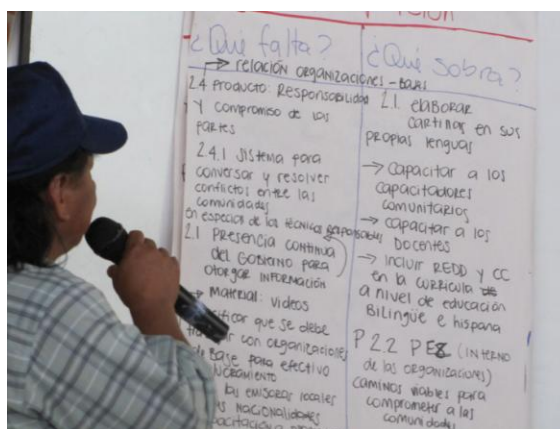 ¿Qué falta?
→ relación organizaciones - bases
2.4 Producto: Responsabilidad
y compromiso de las
partes
2.4.1 Sistema para
conversar y resolver
conflictos entre las
comunidades
en especial de los técnicos responsables
2.1 Presencia continua
del Gobierno para
otorgar información
→ Material: videos
que se debe
con organizaciones
base para efectivo
las emisoras locales
nacionalidades
¿Qué sobra?
2.1. elaborar
cartillas en sus
propias lenguas
→ capacitar a los
capacitadores
comunitarios
→ capacitar a los
docentes
→ incluir REDD y CC
en la curricula
a nivel de educación
Bilingüe e hispana
P 2.2 PE (interno
de las organizaciones)
caminos viables para
comprometer a las
comunidades